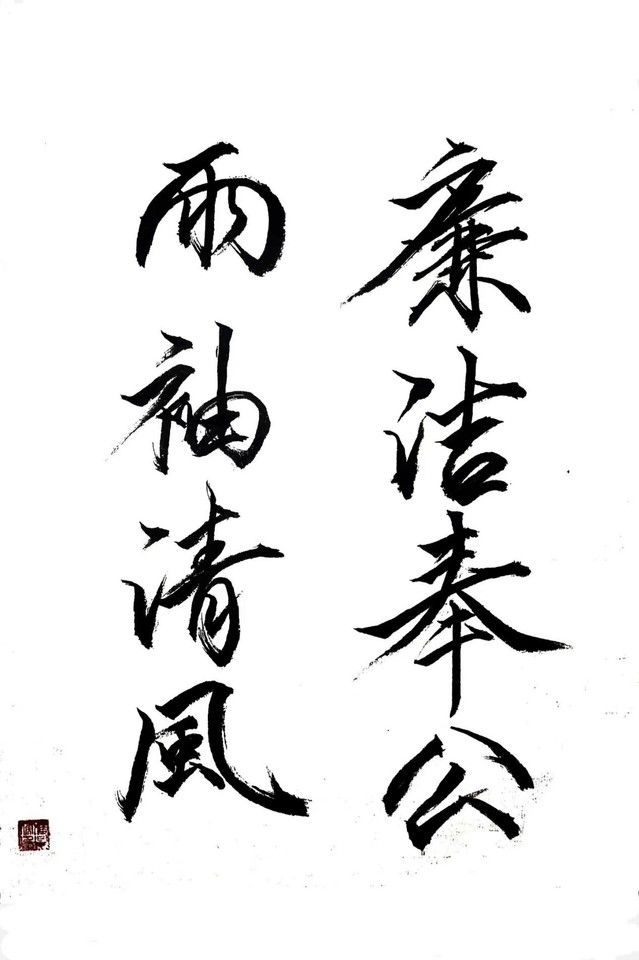 廉洁奉公
兩袖清風